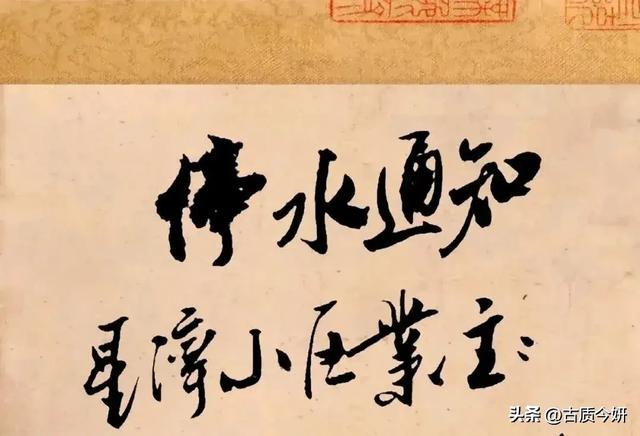 停水通知
星濟小区業主:
头条 @古质今妍